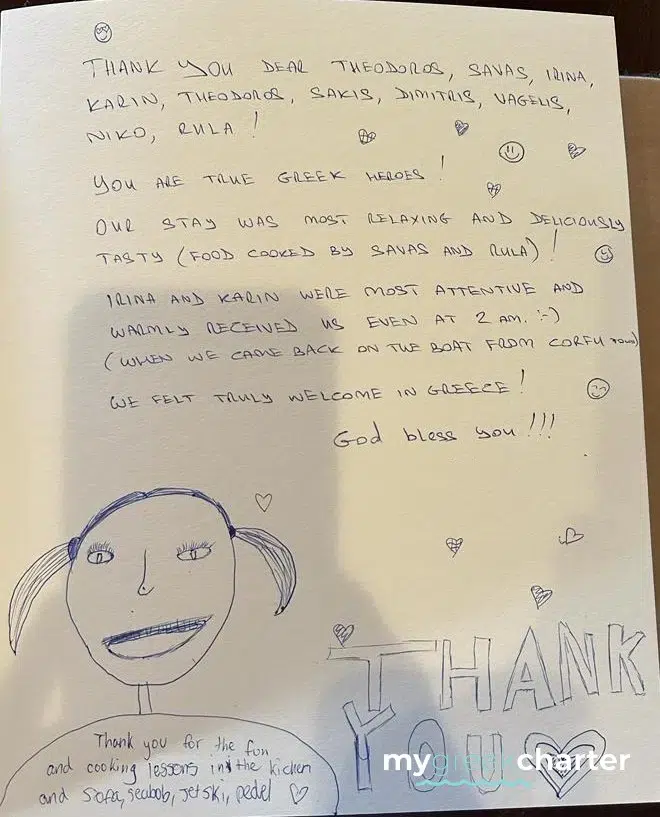 THANK YOU DEAR THEODOROS, SAVAS, IRINA,
KARIN, THEODOROS, SAKIS, DIMITRIS, VAGELIS,
NIKO, RULA!
YOU ARE TRUE GREEK HEROES!
OUR STAY WAS MOST RELAXING AND DELICIOUSLY
TASTY (FOOD COOKED BY SAVAS AND RULA)!
IRINA AND KARIN WERE MOST ATTENTIVE AND
WARMLY RECEIVED US EVEN AT 2 AM. :-)
(WHEN WE CAME BACK ON THE BOAT FROM CORFU TOWN)
WE FELT TRULY WELCOME IN GREECE!
God bless you!!!
THANK
YOU
Thank you for the fun
and cooking lessons in the kichen
and Sofa, seabob, jetski, pedel
mygreekcharter